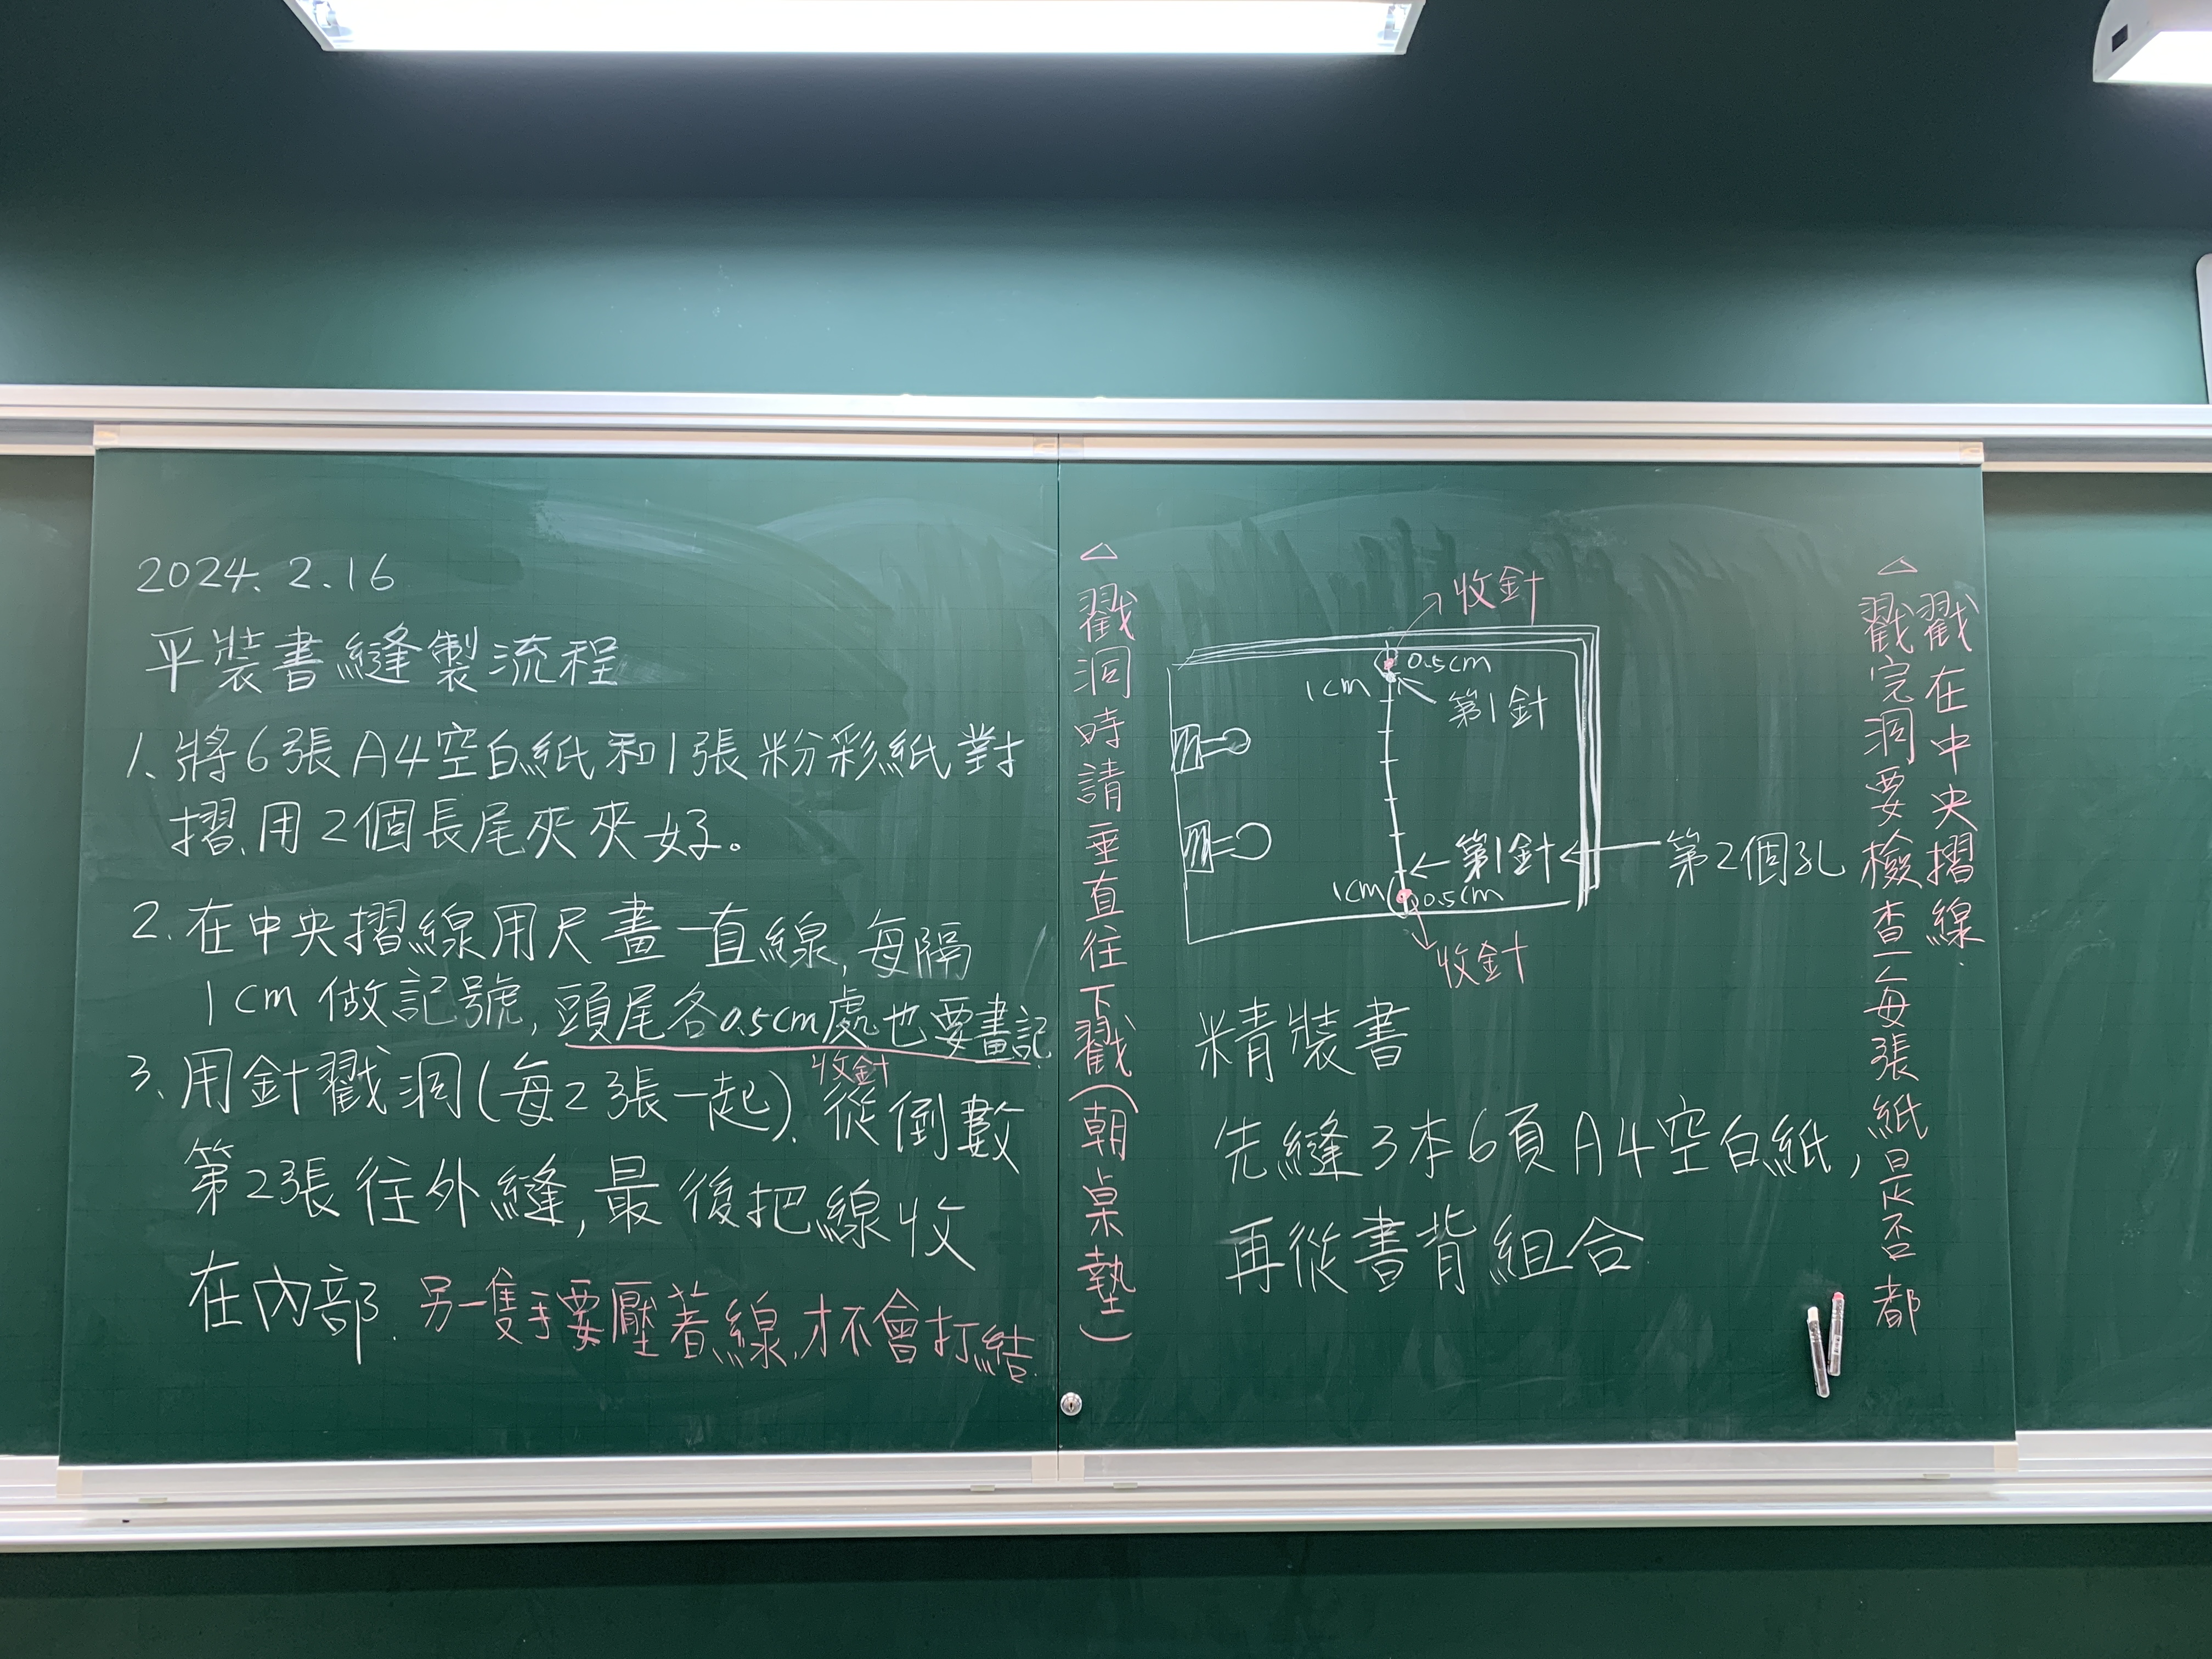 2024.2.16
平裝書縫製流程
1.將6張A4空白紙和1張粉彩紙對
摺,用2個長尾夾夾好。
2.在中央摺線用尺畫一直線,每隔
1cm做記號,頭尾各0.5cm處也要畫記.
收針
3.用針戳洞(每2張一起).從倒數
第2張往外縫,最後把線收
在內部.另一隻手要壓著線,才不會打結.
△戳洞時請垂直往下戳(朝桌墊)
收針
0.5cm
1cm
第1針
第1針
第2個孔
1cm
0.5cm
收針
精裝書
先縫3本6頁A4空白紙,
再從書背組合
△戳完洞要檢查每張紙是否都
戳在中央摺線.